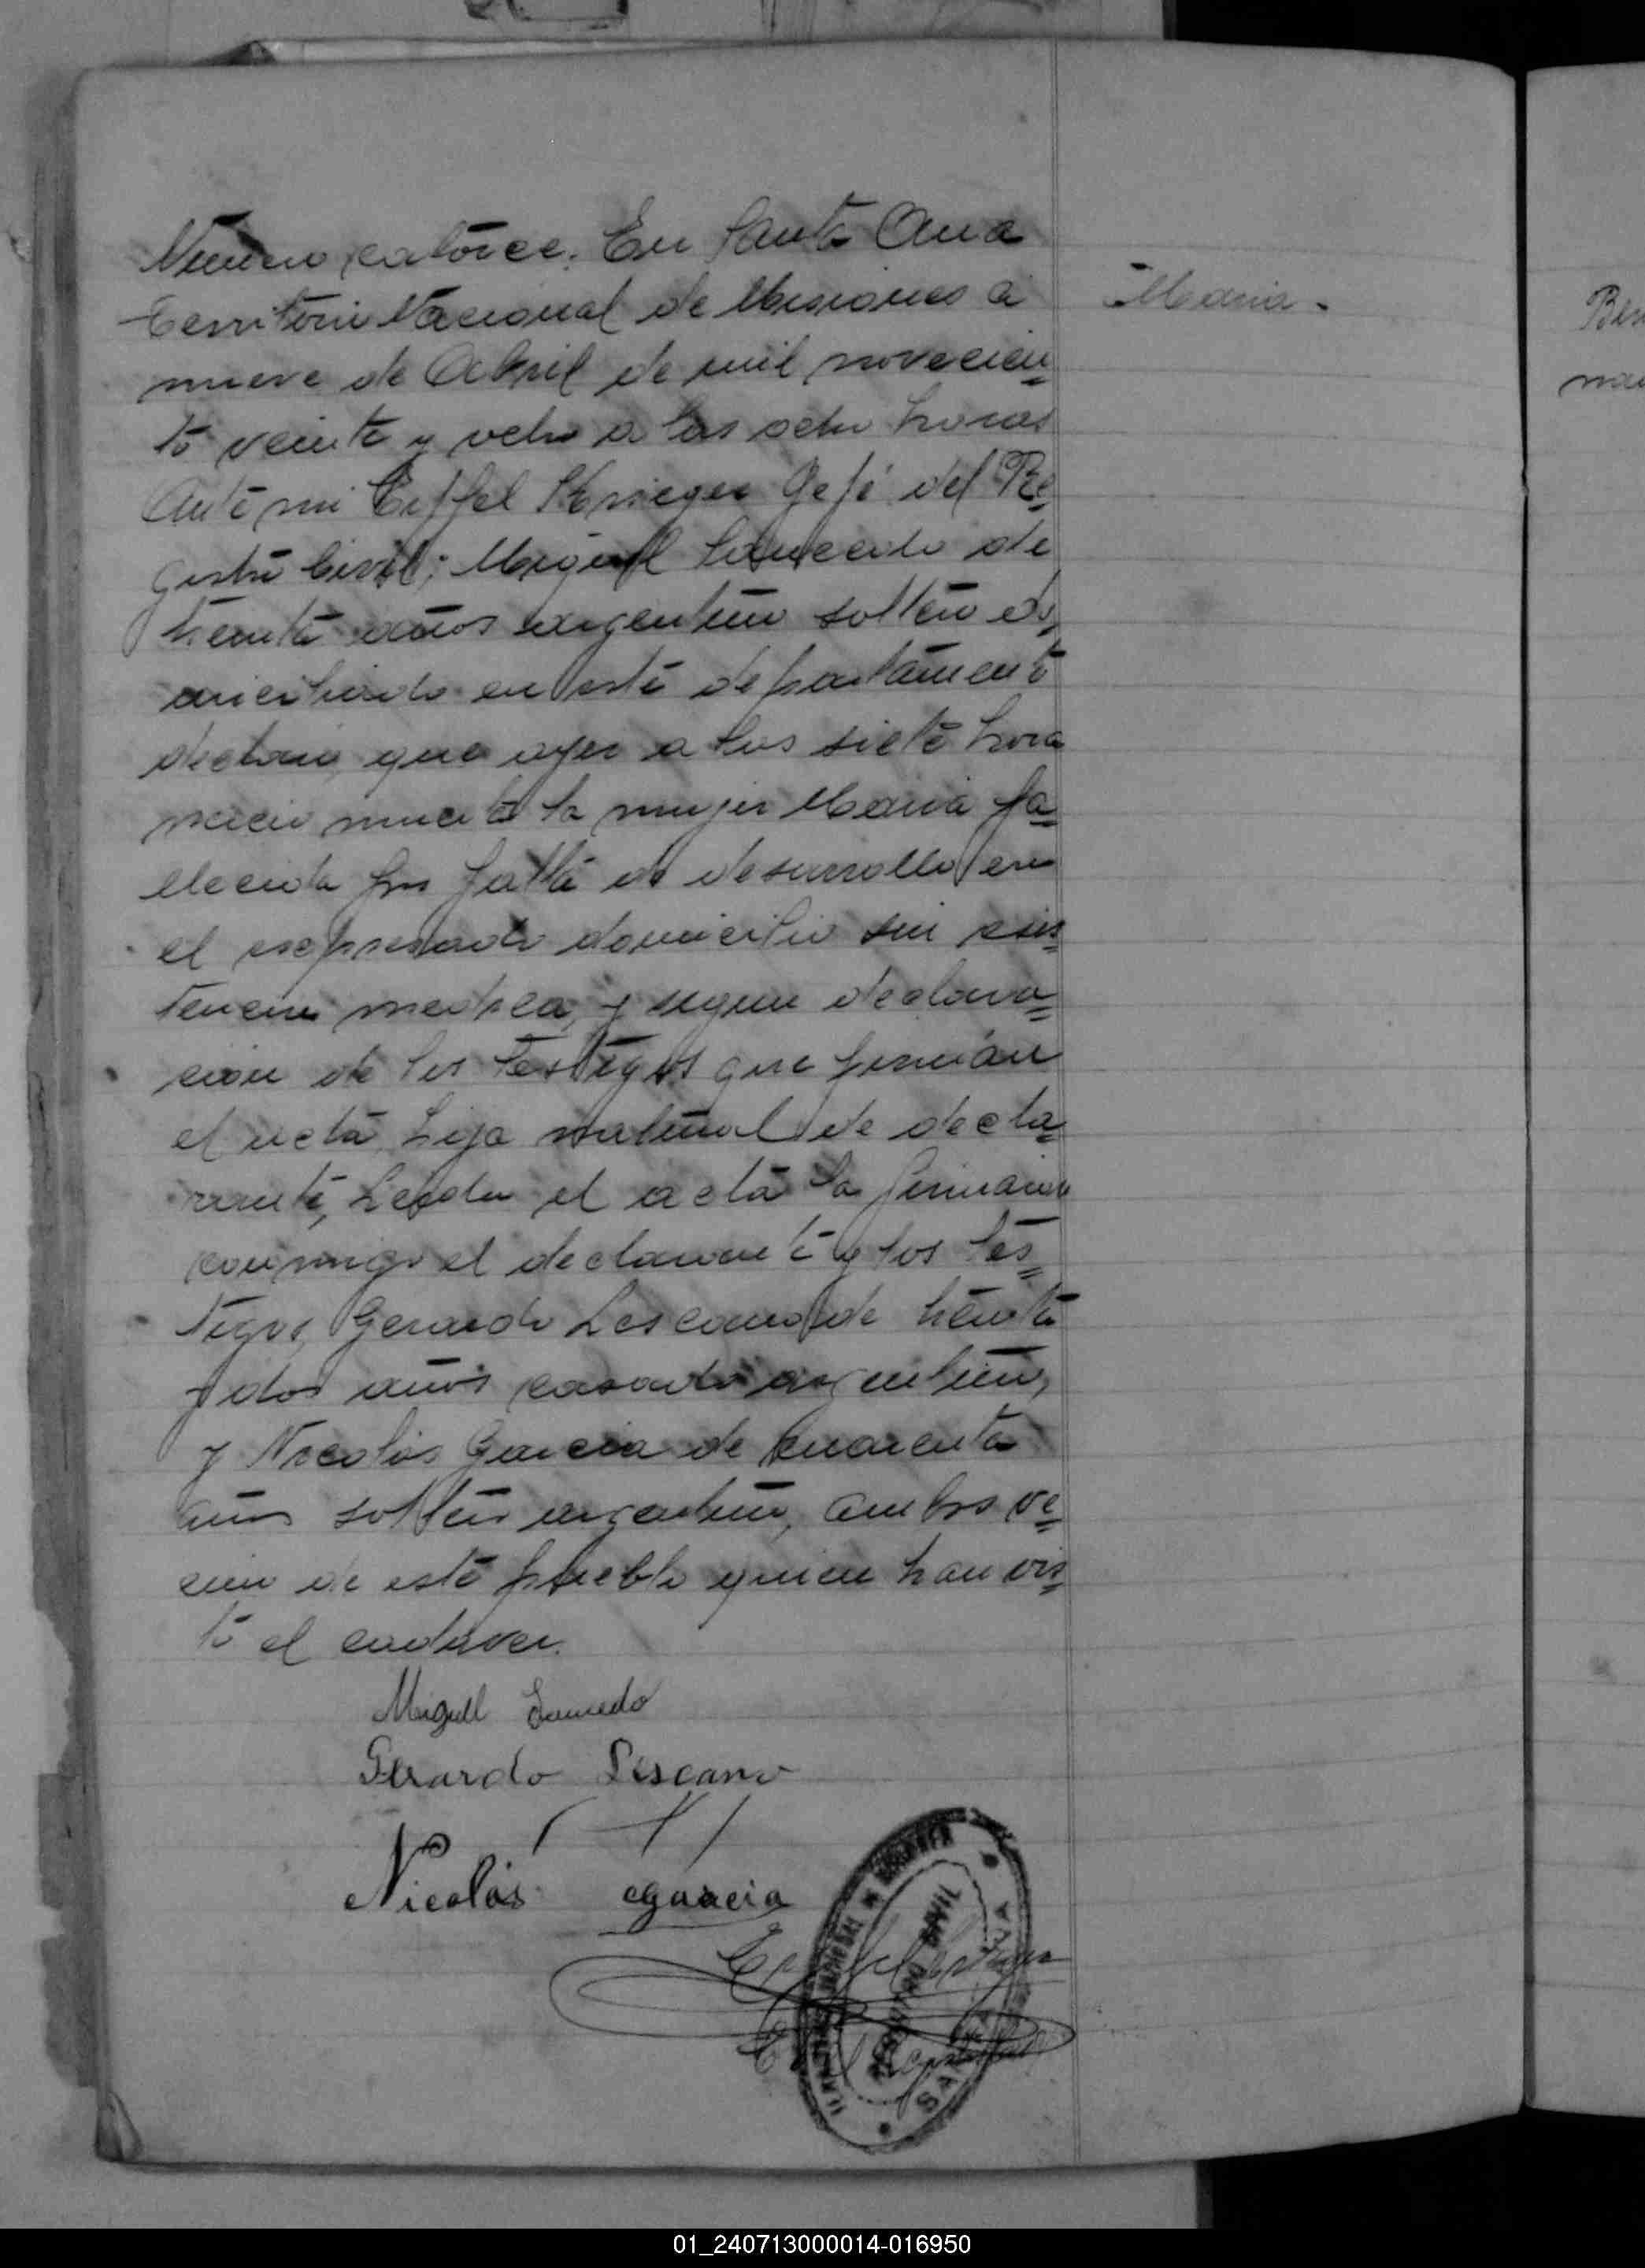 Número catorce. En Santa Ana
Territorio Nacional de Misiones a
nueve de Abril de mil novecien
to veinte y ocho a las ocho horas
Ante mi Eiffel Krieger Gefe del Re
gistro Civil; Miguel de
treinta años argentino soltero do
miciliado en este departamento
declaro que ayer a las siete hora
nacio muerta la mujer Maria fa
llecida por falta de desarrollo en
el espresado domicilio sin asis
tencia medica, y segun declara
cion de los testigos que firman
el acta, hija natural de decla
rante, Leida el acta la firmaron
conmigo el declarante y los tes
tigos, Gerardo Lescano de treinta
y dos años casado argentino,
y Nicolás Garcia de cuarenta
años soltero argentino, ambos ve
cino de este pueblo quien han vis
to el cadaver.
Maria.
Miguel
Gerardo Lescano
Nicolás Garcia
REGISTRO CIVIL
SANTA ANA
01_240713000014-016950